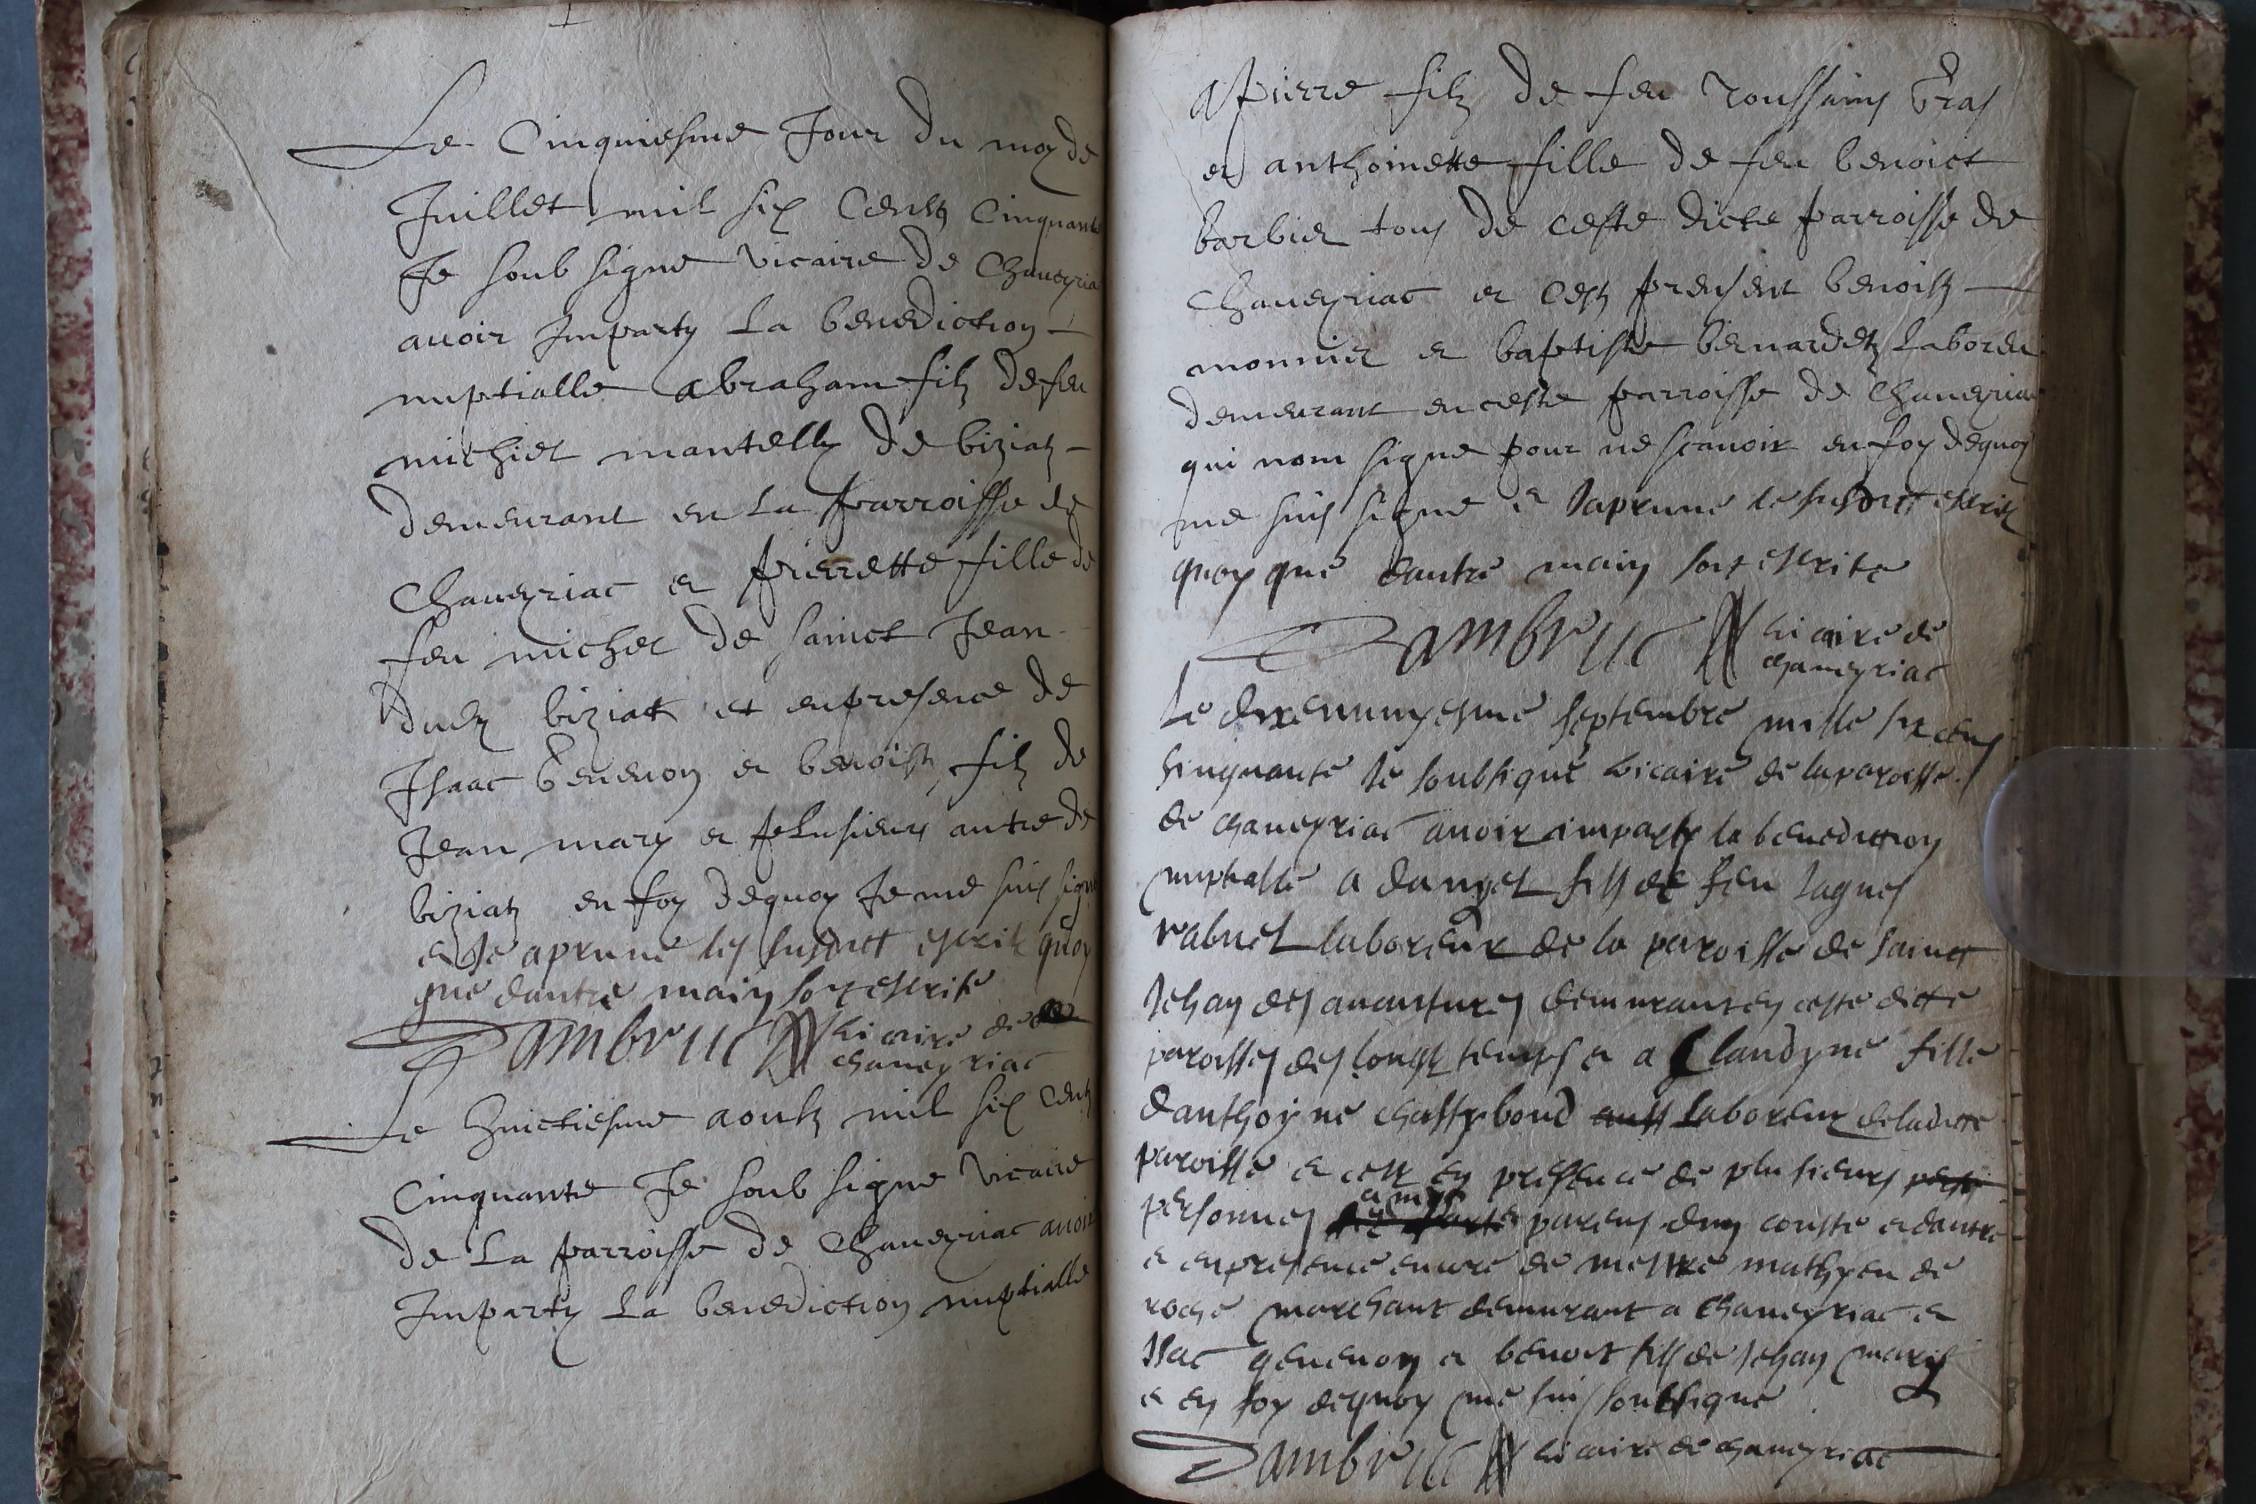 Le Cinquiesme Jour du moy de
Juillet mil six Centz Cinquante
Je soub signe vicaire de Chaveyria
avoir Imparty La benediction
nuptialle Abraham filz de feu
michiel mantelly de biziatz
demeurant en La parroisse de
Chaveyriac et pierrette fille de
feu michel de sainct Jean
dudz biziatt et en presence de
Isaac Genevoy et benoist filz de
Jean mary et plusieurs autre de
biziatz en foy dequoy Je me suis signe
et Je apruve les susdict escritz quoy
que dautre main soyt escrite
Dambruc vicaire de
chaveyriac
Le huictiesme aoutz mil six Centz
Cinquante Je soub signe vicaire
de La parroisse de Chaveyriac avoir
Imparty La benediction nuptialle
A pierre filz de feu Toussains Gras
et anthoinette fille de feu benoict
barbier tous de ceste dicte parroisse de
Chaveyriac et cest present benoist
monnier et baptiste bernardetz Laboreu
demeurant en ceste parroisse de Chaveyriac
qui nom signe pour ne scavoir en foy dequoy
me suis signe et Japruve le susdict escritz
quoy que dautre main soyt escrite
Dambruc vicaire de
chaveyriac
Le dixenuvyesme septembre mille six cens
sinquante Je soubsigné vicaire de la paroisse
de chaveyriac avoir imparty la benedittion
nuptialle a danyel fils de feu Jaques
rabuel laboreur de la paroisse de sainct
Jehan des avantures demurant en ceste ditte
paroisses des longt temps et a Claudyne fille
danthoyne chassyboud Laboreur de ladicte
paroisse et cest en presence de plusieurs
personnes amys parens dun couste et dautre
et en presence encore de mestre mathyeu de
roche marchant demurant a Chaveyriac et
Isac genevoy et benoit fils de Jehan mary
et en foy dequoy me suis soubsigne
Dambruc vicaire de chaveyriac